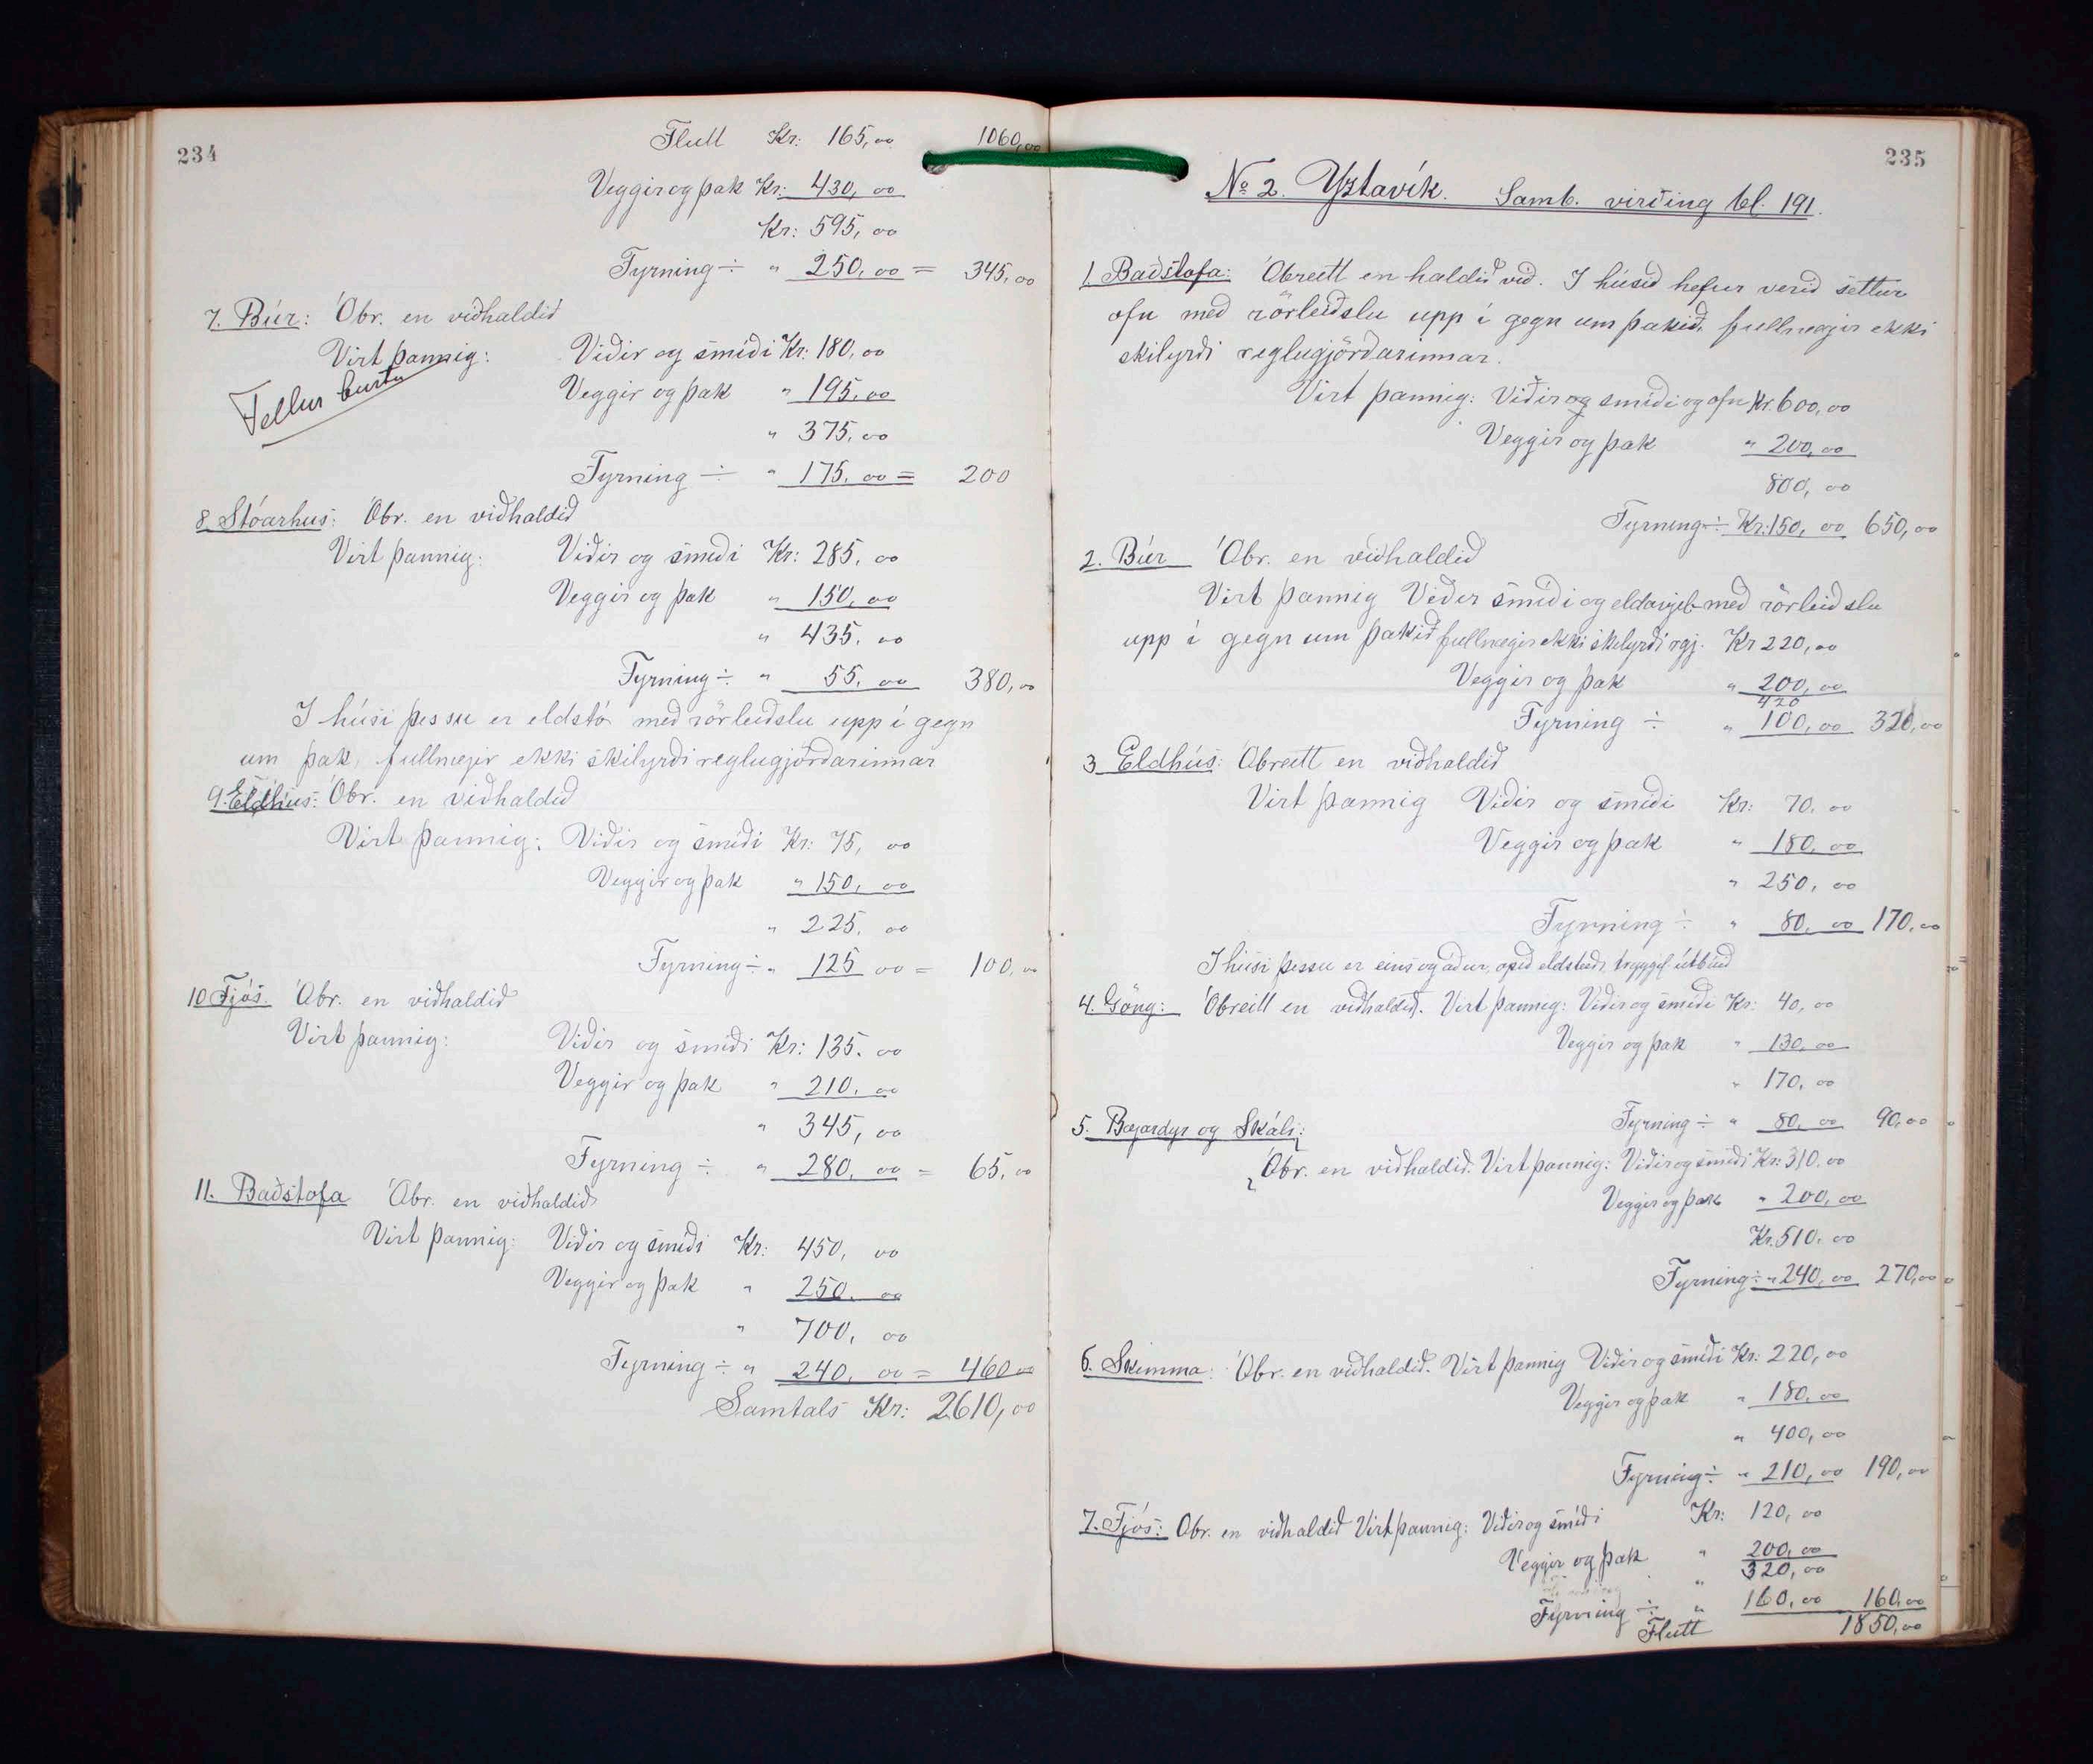 234
Flutt Kr: 165,00 1060,00
Veggir og þak Kr: 430,00
Kr: 595,00
Fyrning ÷ " 250,00 = 345,00
7. Búr: Óbr. en viðhaldið
Virt þannig: Viðir og smíði Kr: 180,00
Fellur burtu
Veggir og þak " 195,00
" 375,00
Fyrning ÷ " 175,00 = 200
8. Stóarhus: Óbr. en viðhaldið
Virt þannig: Viðir og smíði Kr: 285,00
Veggir og þak " 150,00
" 435,00
Fyrning ÷ " 55,00 380,00
I húsi þessu er eldstó með rörleiðslu upp í gegn
um þak, fullnægir ekki skilyrði reglugjörðarinnar
9. Eldhús: Óbr. en viðhaldið
Virt þannig: Viðir og smíði Kr: 75,00
Veggir og þak " 150,00
" 225,00
Fyrning ÷ " 125 00 = 100,00
10 Fjós. Óbr. en viðhaldið
Virt þannig: Viðir og smíði Kr: 135.00
Veggir og þak " 210.00
" 345,00
Fyrning ÷ " 280,00 = 65,00
11. Baðstofa Óbr. en viðhaldið
Virt þannig: Viðir og smíði Kr: 450,00
Veggir og þak " 250.00
" 700,00
Fyrning ÷ " 240,00 = 460 00
Samtals Kr: 2610,00
235
No 2. Yztavík. Samb. virðing bl. 191.
1. Baðstofa: Óbreitt en haldið við. I húsið hefur verið settur
ofn með rörleiðslu upp í gegn um þakið, fullnægir ekki
skilyrði reglugjörðarinnar.
Virt þannig: Viðir og smíði og ofn Kr. 600,00
Veggir og þak " 200,00
800,00
Fyrning ÷ Kr: 150,00 650,00
2. Búr Óbr. en viðhaldið
Virt þannig Viðir smíði og eldavjel með rörleiðslu
upp í gegn um þakið fullnægir ekki skilyrði rgj. Kr 220,00
Veggir og þak " 200,00
420
Fyrning ÷ " 100,00 320,00
3 Eldhús: Óbreitt en viðhaldið
Virt þannig Viðir og smíði Kr: 70.00
Veggir og þak " 180.00
" 250,00
Fyrning ÷ " 80,00 170,00
I húsi þessu er eins og áður, opið eldstæði, tryggil. útbúið
4. Göng: Óbreitt en viðhaldið. Virt þannig: Viðir og smíði Kr: 40,00
Veggir og þak " 130,00
" 170,00
Fyrning ÷ " 80,00 90,00
5. Bæjardyr og Skáli:
Óbr. en viðhaldið. Virt þannig: Viðir og smíði Kr: 310.00
Veggir og þak " 200,00
Kr. 510.00
Fyrning ÷ " 240,00 270,00
6. Skemma: Óbr. en viðhaldið. Virt þannig Viðir og smíði Kr: 220,00
Veggir og þak " 180,00
" 400,00
Fyrning ÷ " 210,00 190,00
7. Fjós: Obr. en viðhaldið Virt þannig: Viðir og smíði Kr: 120,00
Veggir og þak " 200,00
" 320,00
Fyrning ÷ " 160,00 160,00
Flutt 1850,00